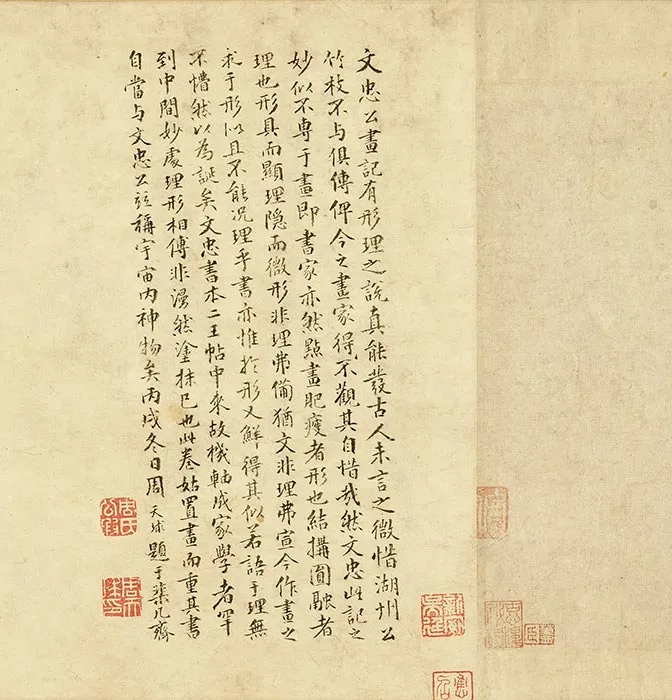 文忠公畫記有形理之說真能發古人未言之微惜湖州公
竹枝不与俱傳俾今之畫家得不觀其自惜哉然文忠此記之
妙似不專于畫即書家亦然點畫肥瘦者形也結搆圓融者
理也形具而顯理隱而微形非理弗備猶文非理弗宣今作畫之
求于形似且不能况理乎書亦惟於形又鮮得其似若語于理無
不懵然以為誕矣文忠書本二王帖中來故機軸成家學者罕
到中間妙處理形相傳非漫然塗抹已也此卷姑置畫而重其書
自當与文忠公竝稱宇宙内神物矣丙戌冬日周天球題于柒几齋
周氏公瑕